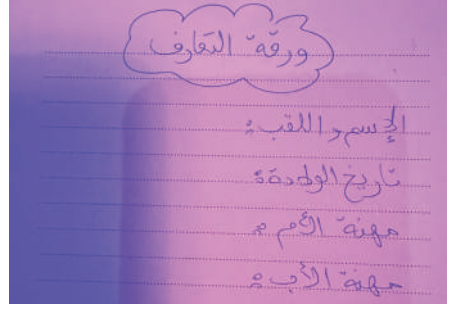 ورقة التعارف
الإسم و اللقب:
تاريخ الولادة:
مهنة الأم:
مهنة الأب: